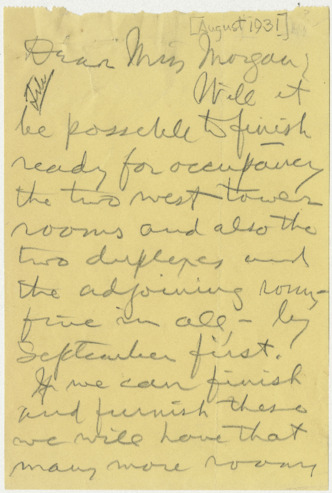 [August 1931]
Dear Miss Morgan,
File
Will it
be possible to finish
ready for occupancy
the two west tower
rooms and also the
two duplexes and
the adjoining rooms –
five in all, – by
September first.
If we can finish
and furnish these
we will have that
many more rooms